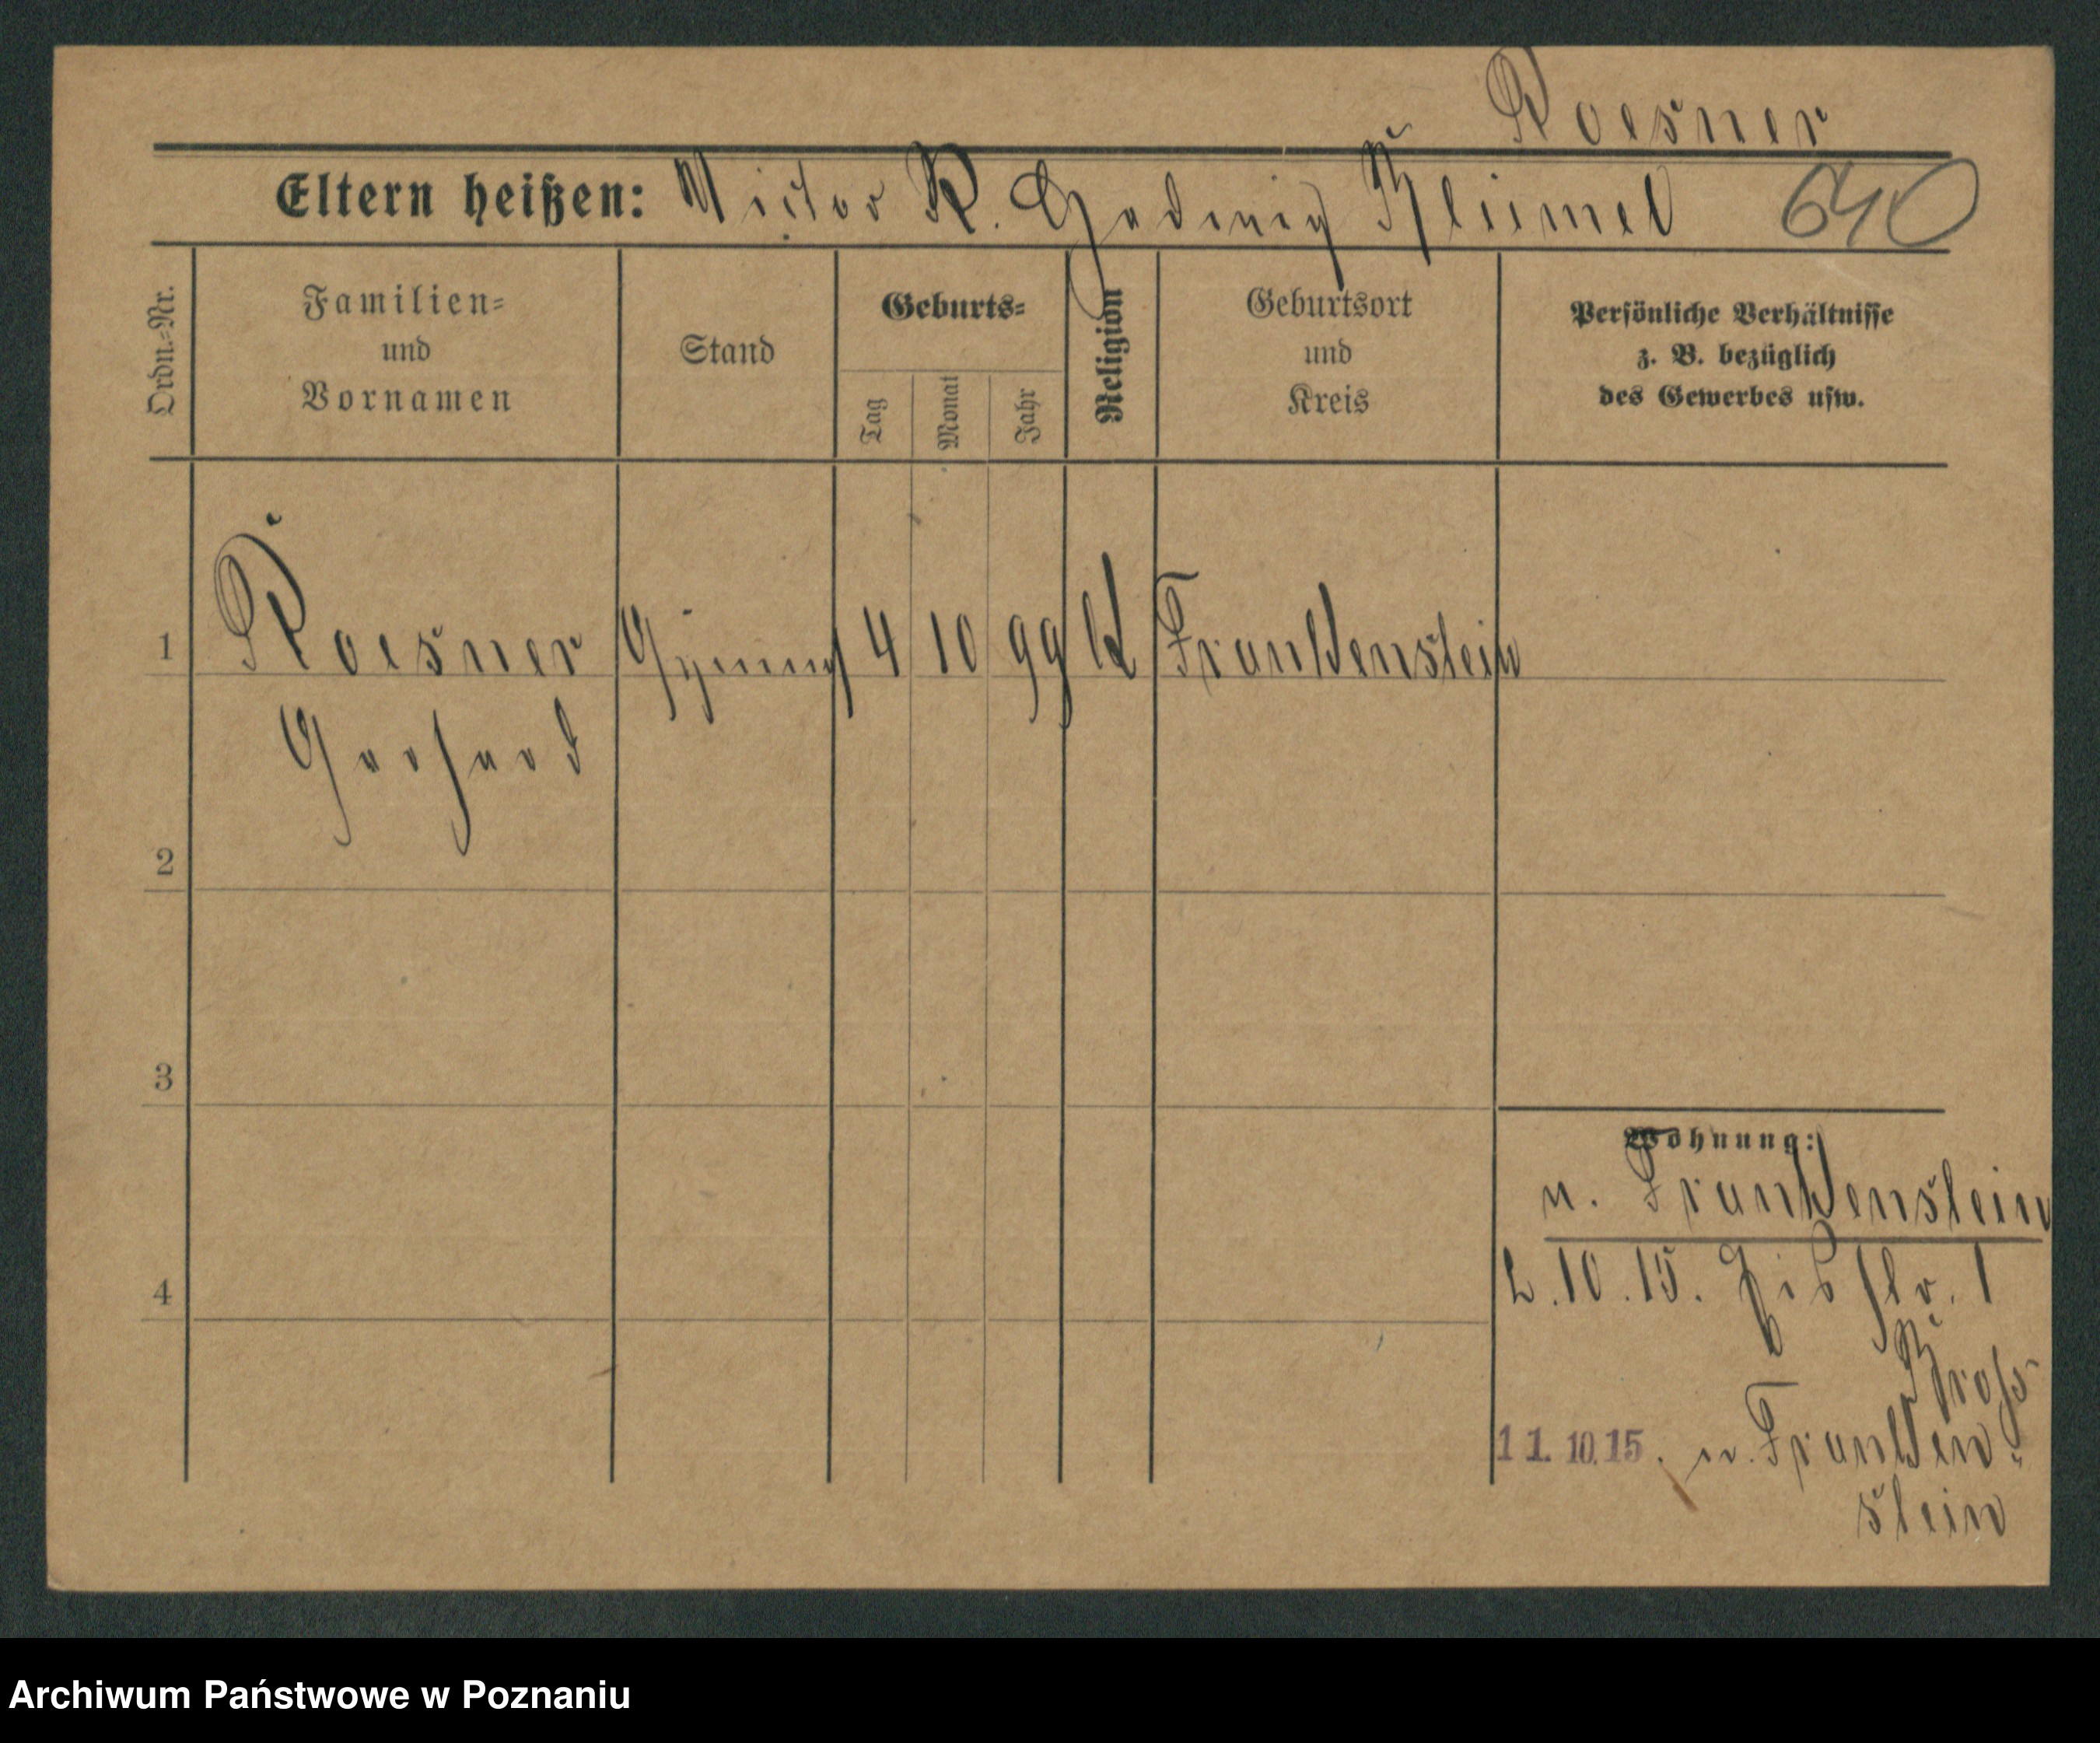 Roesner
Eltern heißen: Victor R. Hedwig Kleimel 640
Ordn.-Nr.
Familien-
und
Vornamen
Stand
Geburts-
Tag
Monat
Jahr
Religion
Geburtsort
und
Kreis
Persönliche Verhältnisse
z. B. bezüglich
des Gewerbes usw.
1 Roesner 4 10 99 k Frankenstein
Gerhard
2
3
4
Wohnung:
n. Frankenstein
2.10.15. 1
11.10.15. n. Franken-
stein
Archiwum Państwowe w Poznaniu